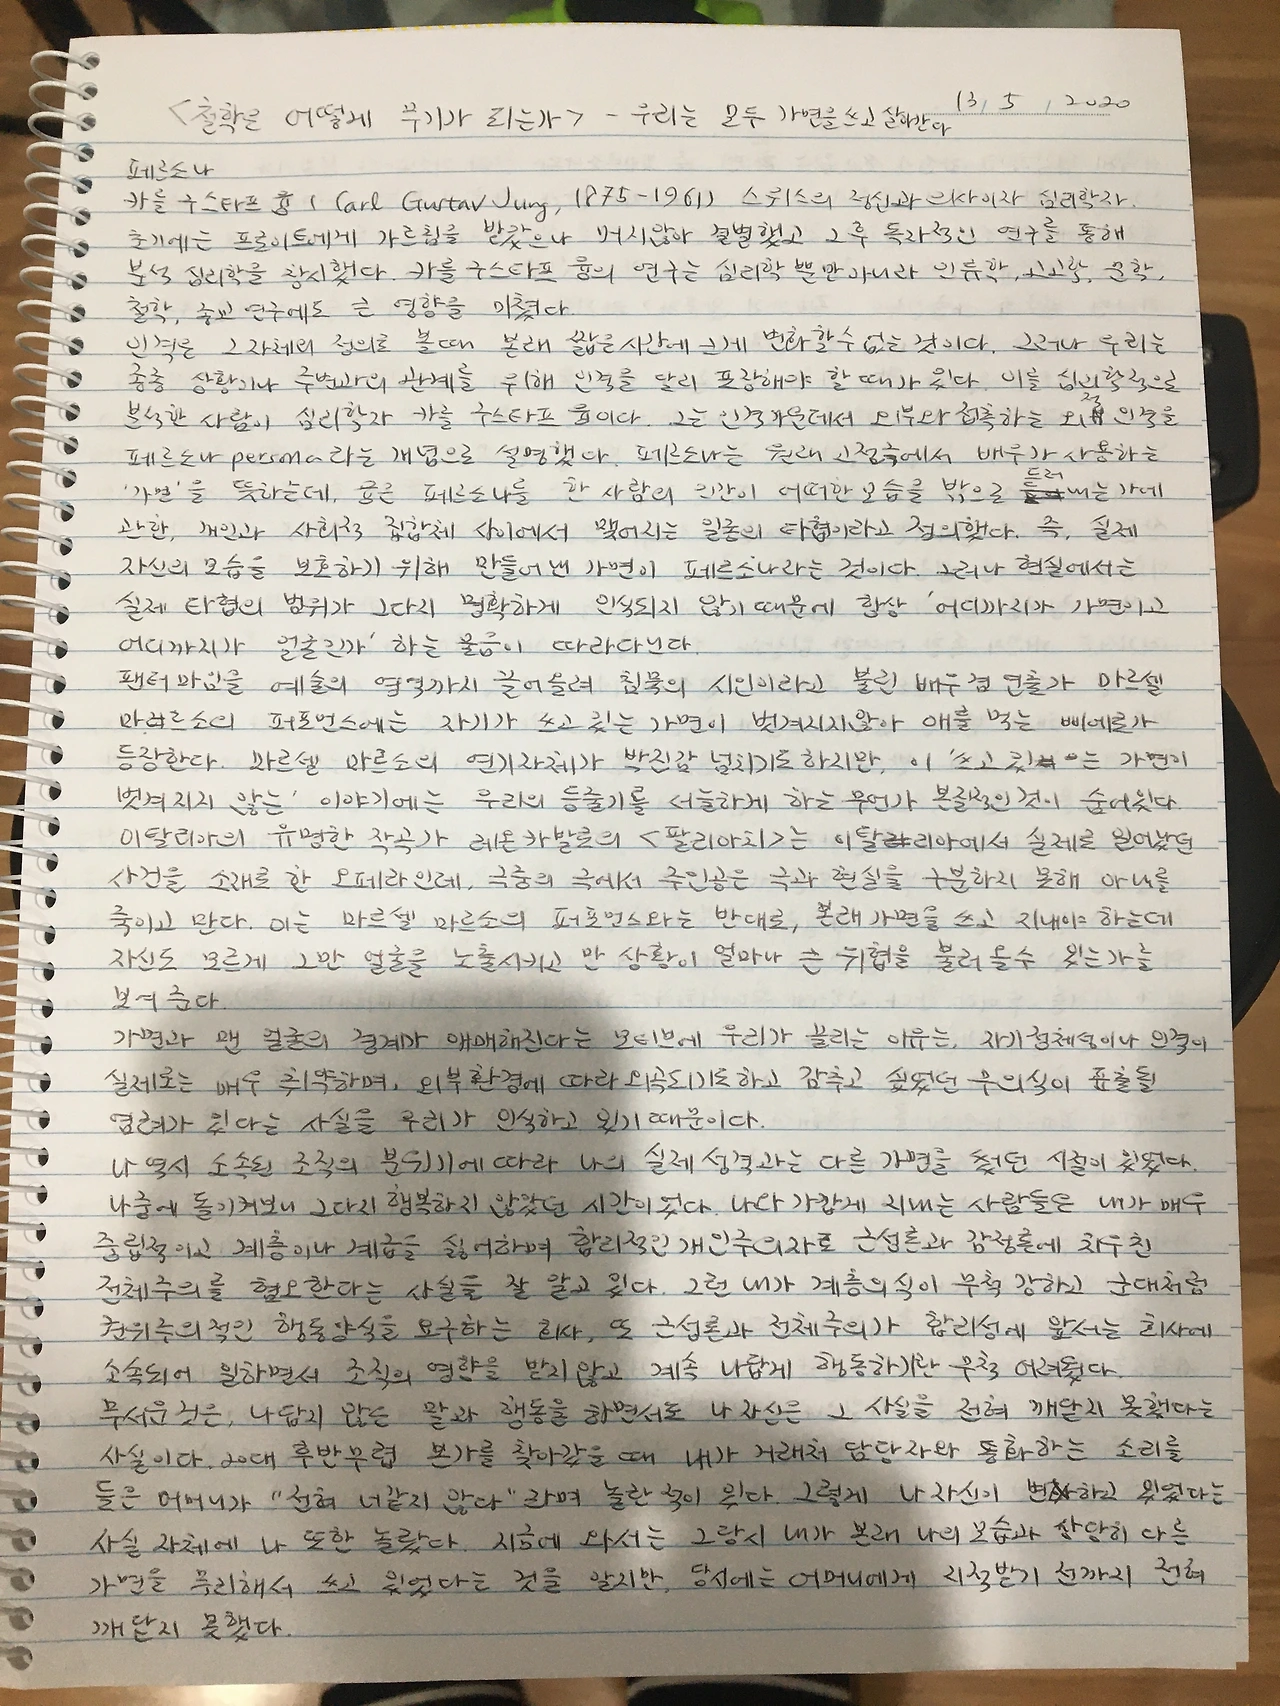 13, 5, 2020
<철학은 어떻게 무기가 되는가> - 우리는 모두 가면을 쓰고 살아간다
페르소나
카를 구스타프 융 (Carl Gustav Jung, 1875-1961) 스위스의 정신과 의사이자 심리학자.
초기에는 프로이트에게 가르침을 받았으나 머지않아 결별했고 그후 독자적인 연구를 통해
분석 심리학을 창시했다. 카를 구스타프 융의 연구는 심리학 뿐만 아니라 인류학, 고고학, 문학,
철학, 종교 연구에도 큰 영향을 미쳤다.
인격은 그 자체의 정의로 볼때 본래 짧은 시간에 크게 변화할 수 없는 것이다. 그러나 우리는
종종 상황이나 주변과의 관계를 위해 인격을 달리 포장해야 할 때가 있다. 이를 심리학적으로
분석한 사람이 심리학자 카를 구스타프 융이다. 그는 인격 가운데서 외부와 접촉하는 외적 인격을
페르소나 persona라는 개념으로 설명했다. 페르소나는 원래 고전극에서 배우가 사용하는
'가면'을 뜻하는데, 융은 페르소나를 한 사람의 인간이 어떠한 모습을 밖으로 드러내는가에
관한, 개인과 사회적 집합체 사이에서 맺어지는 일종의 타협이라고 정의했다. 즉, 실제
자신의 모습을 보호하기 위해 만들어 낸 가면이 페르소나라는 것이다. 그러나 현실에서는
실제 타협의 범위가 그다지 명확하게 인식되지 않기 때문에 항상 '어디까지가 가면이고
어디까지가 얼굴인가' 하는 물음이 따라다닌다.
팬터마임을 예술의 영역까지 끌어올려 침묵의 시인이라고 불린 배우 겸 연출가 마르셀
마르소의 퍼포먼스에는 자기가 쓰고 있는 가면이 벗겨지지 않아 애를 먹는 삐에로가
등장한다. 마르셀 마르소의 연기 자체가 박진감 넘치기도 하지만, 이 '쓰고 있는 가면이
벗겨지지 않는' 이야기에는 우리의 등줄기를 서늘하게 하는 무언가 본질적인 것이 숨어있다.
이탈리아의 유명한 작곡가 레온카발로의 <팔리아치>는 이탈리아에서 실제로 일어났던
사건을 소재로 한 오페라인데, 극중의 극에서 주인공은 극과 현실을 구분하지 못해 아내를
죽이고 만다. 이는 마르셀 마르소의 퍼포먼스와는 반대로, 본래 가면을 쓰고 지내야 하는데
자신도 모르게 그만 얼굴을 노출시키고 만 상황이 얼마나 큰 위협을 불러올 수 있는가를
보여 준다.
가면과 맨 얼굴의 경계가 애매해진다는 모티브에 우리가 끌리는 이유는, 자기정체성이나 인격이
실제로는 매우 취약하며, 외부환경에 따라 왜곡되기도 하고 감추고 싶었던 무의식이 표출될
염려가 있다는 사실을 우리가 인식하고 있기 때문이다.
나 역시 소속된 조직의 분위기에 따라 나의 실제 성격과는 다른 가면을 썼던 시절이 있었다.
나중에 돌이켜보니 그다지 행복하지 않았던 시간이었다. 나와 가깝게 지내는 사람들은 내가 매우
중립적이고 계층이나 계급을 싫어하며 합리적인 개인주의자로 근성론과 감정론에 치우친
전체주의를 혐오한다는 사실을 잘 알고 있다. 그런 내가 계층의식이 무척 강하고 군대처럼
권위주의적인 행동양식을 요구하는 회사, 또 근성론과 전체주의가 합리성에 앞서는 회사에
소속되어 일하면서 조직의 영향을 받지 않고 계속 나답게 행동하기란 무척 어려웠다.
무서운 것은, 나답지 않은 말과 행동을 하면서도 나 자신은 그 사실을 전혀 깨닫지 못했다는
사실이다. 20대 후반무렵 본가를 찾아갔을 때 내가 거래처 담당자와 통화하는 소리를
들은 어머니가 "전혀 너같지 않다"라며 놀란 적이 있다. 그렇게 나 자신이 변화하고 있었다는
사실 자체에 나 또한 놀랐다. 지금에 와서는 그 당시 내가 본래 나의 모습과 상당히 다른
가면을 무리해서 쓰고 있었다는 것을 알지만, 당시에는 어머니에게 지적받기 전까지 전혀
깨닫지 못했다.